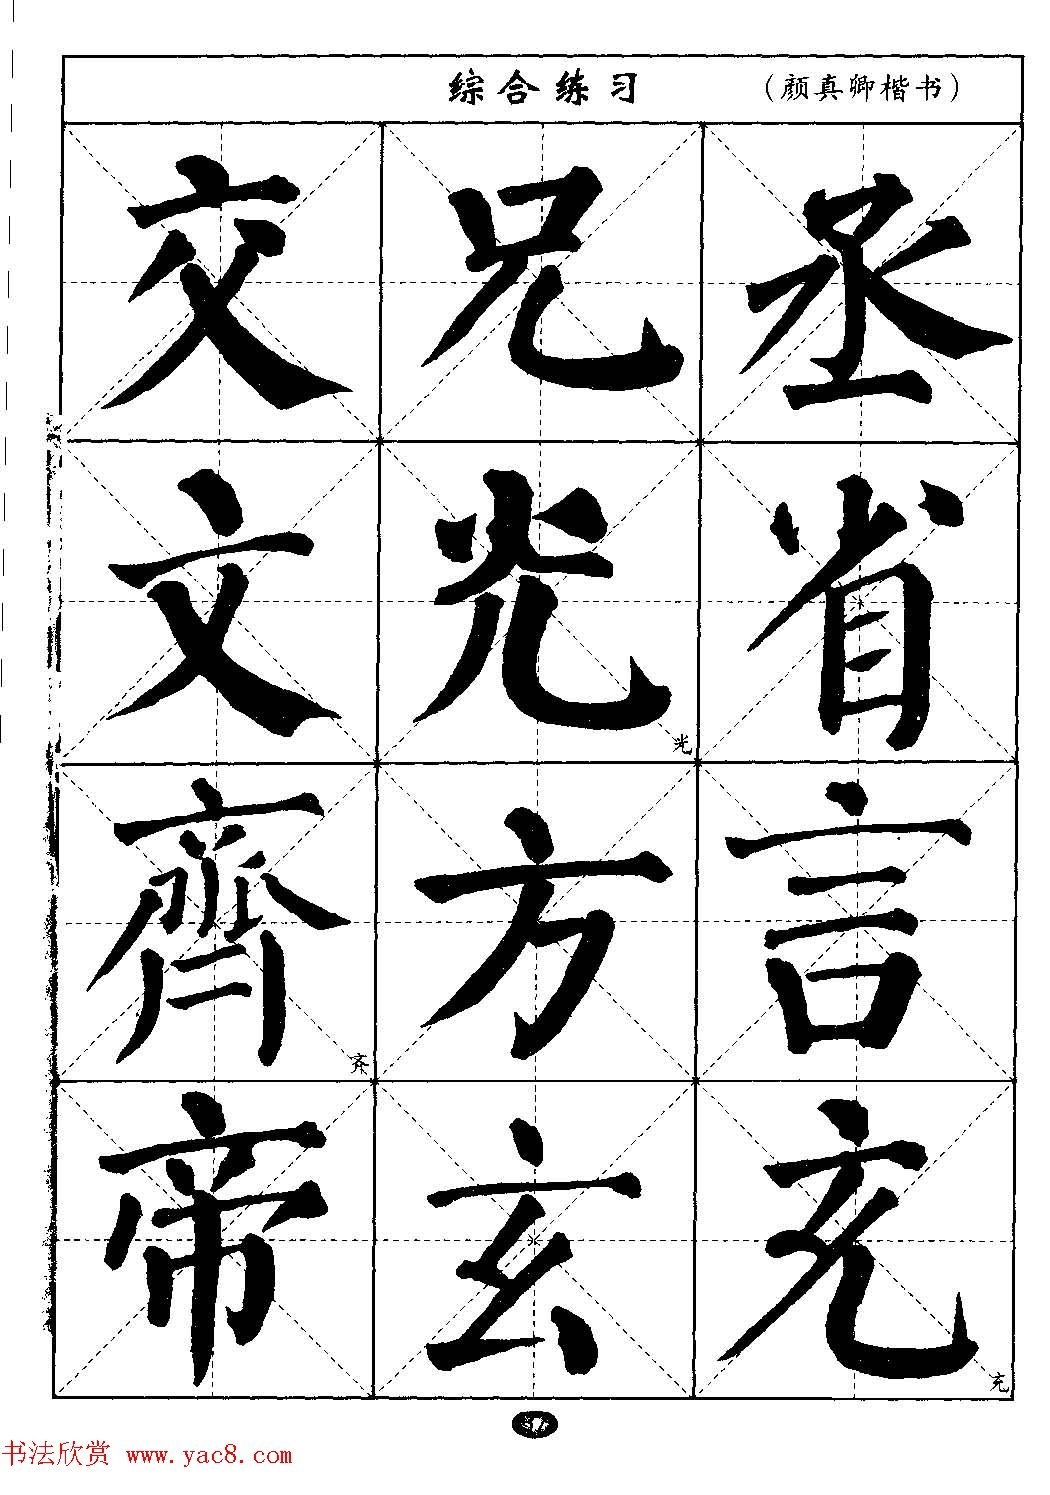 综合练习 （颜真卿楷书）
交 兄 丞
文 光 省
光
齊 方 言
齐
帝 玄 充
充
57
书法欣赏 www.yac8.com